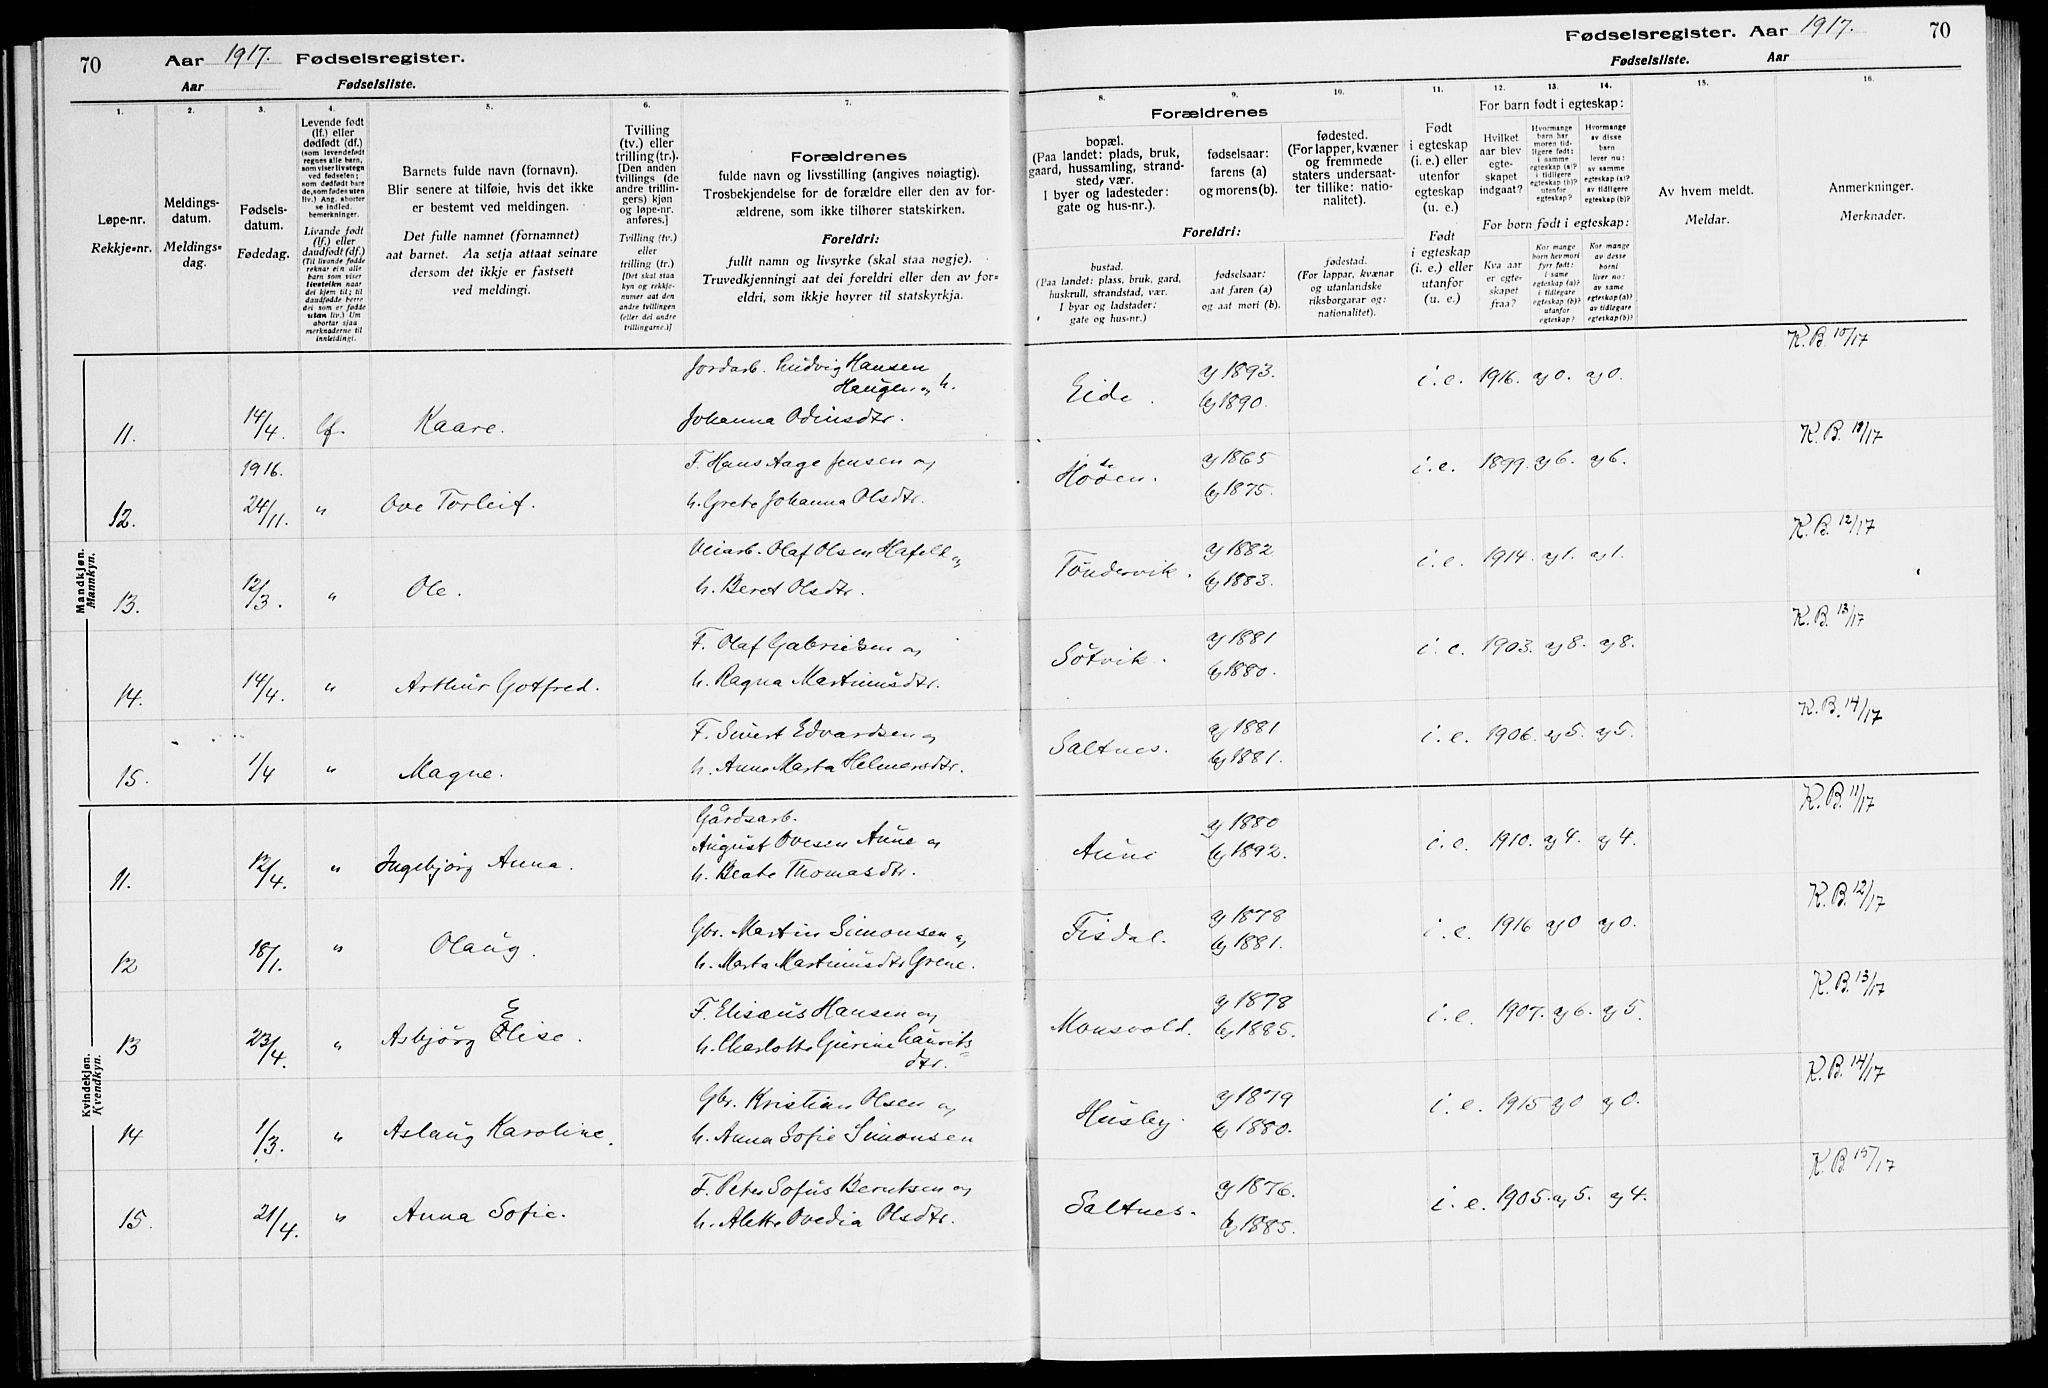 70 Aar 1917. Fødselsregister.
Aar Fødselsliste.
Fødselsregister. Aar 1917. 70
Fødselsliste. Aar
1. 2. 3. 4. 5. 6. 7.
Løpe-nr.
Rekkje-nr.
Meldings-
datum.
Meldings-
dag.
Fødsels-
datum.
Fødedag.
Levende født
(lf.) eller
dødfødt (df.)
(som levendefødt
regnes alle barn,
som viser livstegn
ved fødselen;
som dødfødt bare
de, som fødes uten
liv.) Ang. aborter
se indled.
bemerkninger.
Livande født
(lf.) eller
daudfødt (df.)
(Til livande fødde
reknar ein alle
barn som viser
livsteikn naar
dei kjem til; til
daudfødde berre
dei som er fødde
utan liv.) Um
abortar sjaa
merknaderne til
innleidingi.
Barnets fulde navn (fornavn).
Blir senere at tilføie, hvis det ikke
er bestemt ved meldingen.
Det fulle namnet (fornamnet)
aat barnet. Aa setja attaat seinare
dersom det ikkje er fastsett
ved meldingi.
Tvilling
(tv.) eller
trilling (tr.).
[Den anden
tvillings (de
andre trillin-
gers) kjøn
og løpe-nr.
anføres.]
Tvilling (tv.)
eller
trilling (tr.)
[Det skal staa
kyn og rekkje-
numer aat den
andre tvillingen
(eller dei andre
trillingarne.)]
Forældrenes
fulde navn og livsstilling (angives nøiagtig).
Trosbekjendelse for de forældre eller den av for-
ældrene, som ikke tilhører statskirken.
Foreldri:
fullt namn og livsyrke (skal staa nøgje).
Truvedkjenningi aat dei foreldri eller den av for-
eldri, som ikkje høyrer til statskyrkja.
8. 9. 10. 11. 12. 13. 14. 15. 16.
Forældrenes
bopæl.
(Paa landet: plads, bruk,
gaard, hussamling, strand-
sted, vær.
I byer og ladesteder:
gate og hus-nr.).
fødselsaar:
farens (a)
og morens (b).
fødested.
(For lapper, kvæner
og fremmede
staters undersaat-
ter tillike: natio-
nalitet).
Foreldri:
bustad.
(Paa landet: plass, bruk, gard,
huskrull, strandstad, vær.
I byar og ladstader:
gate og hus-nr.)
fødselsaar:
aat faren (a)
og aat mori (b).
fødestad.
(For lappar, kvænar
og utanlandske
riksborgarar og:
nationalitet).
Født
i egteskap
(i. e.) eller
utenfor
egteskap
(u. e.)
Født
i egteskap
(i. e.) eller
utanfor
egteskap
(u. e.)
For barn født i egteskap:
Hvilket
aar blev
egte-
skapet
indgaat?
Hvormange
barn har
moren tid-
ligere født:
i samme
egteskap (a)?
i tidligere
egteskap (b)?
utenfor
egteskap?
Hvormange
av disse
barn
lever nu:
av samme
egteskap (a)?
av tidligere
egteskap (b)?
For born født i egteskap:
Kva aar
er egte-
skapet
fraa?
Kor mange
born hev mori
fyrr født:
i same
egteskap (a)?
i tidlegare
egteskap (b)?
utanfor
egteskap?
Kor mange
av desse
borni
liver no:
av same
egteskap (a)?
av tidlegare
egteskap (b)?
Av hvem meldt.
Meldar.
Anmerkninger.
Merknader.
Mandkjøn.
Mannkyn.
11. 14/4. lf. Kaare. Jordarb. Ludvig Hansen
Haugen og h.
Johanna Odinsdtr. Eide. a) 1893.
b) 1890. i. e. 1916. a) 0. a) 0. K.B. 10/17
12. 1916.
24/11. " Ove Torleif. F. Hans Aage Jensen og
h. Grete Johanna Olsdtr. a) 1865
b) 1875. i. e. 1899. a) 6. a) 6. K.B. 11/17
13. 12/3. " Ole. Veiarb. Olaf Olsen Hafeld og
h. Beret Olsdtr. Töndervik. a) 1882
b) 1883. i. e. 1914. a) 1. a) 1. K.B. 12/17
14. 14/4. " Arthur Gotfred. F. Olaf Gabrielsen og
h. Ragna Martinusdtr. Søtvik. a) 1881
b) 1880. i. e. 1903. a) 8. a) 8. K.B. 13/17
15. 1/4 " Magne. F. Sivert Edvardsen og
h. Anne Marta Helmersdtr. Saltnes. a) 1881
b) 1881. i. e. 1906. a) 5. a) 5. K.B. 14/17
Kvindekjøn.
Kvendkyn.
11. 12/4. " Ingebjörg Anna. Gårdsarb.
August Ovesen Aune og
h. Beate Thomasdtr. Aune a) 1880
b) 1892. i. e. 1910. a) 4. a) 4. K.B. 11/17
12 18/1. " Olaug. Gbr. Martin Simonsen og
h. Marta Martinusdtr Grene. Fisdal. a) 1878
b) 1881. i. e. 1916 a) 0 a) 0. K.B. 12/17
13 23/4. " Asbjörg Elise. F. Elisæus Hansen og
h. Charlotte Gurine Laurits-
dtr. Monsvold. a) 1878
b) 1885. i. e. 1907. a) 6. a) 5. K.B. 13/17
14 1/3. " Aslaug Karoline. Gbr. Kristian Olsen og
h. Anna Sofie Simonsen Husby. a) 1879
b) 1880. i. e. 1915 a) 0 a) 0. K.B. 14/17
15. 21/4. " Anna Sofie. F. Peter Sofus Berntsen og
h. Alette Ovedia Olsdtr. Saltnes. a) 1876.
b) 1885. i. e. 1905. a) 5. a) 4. K.B. 15/17